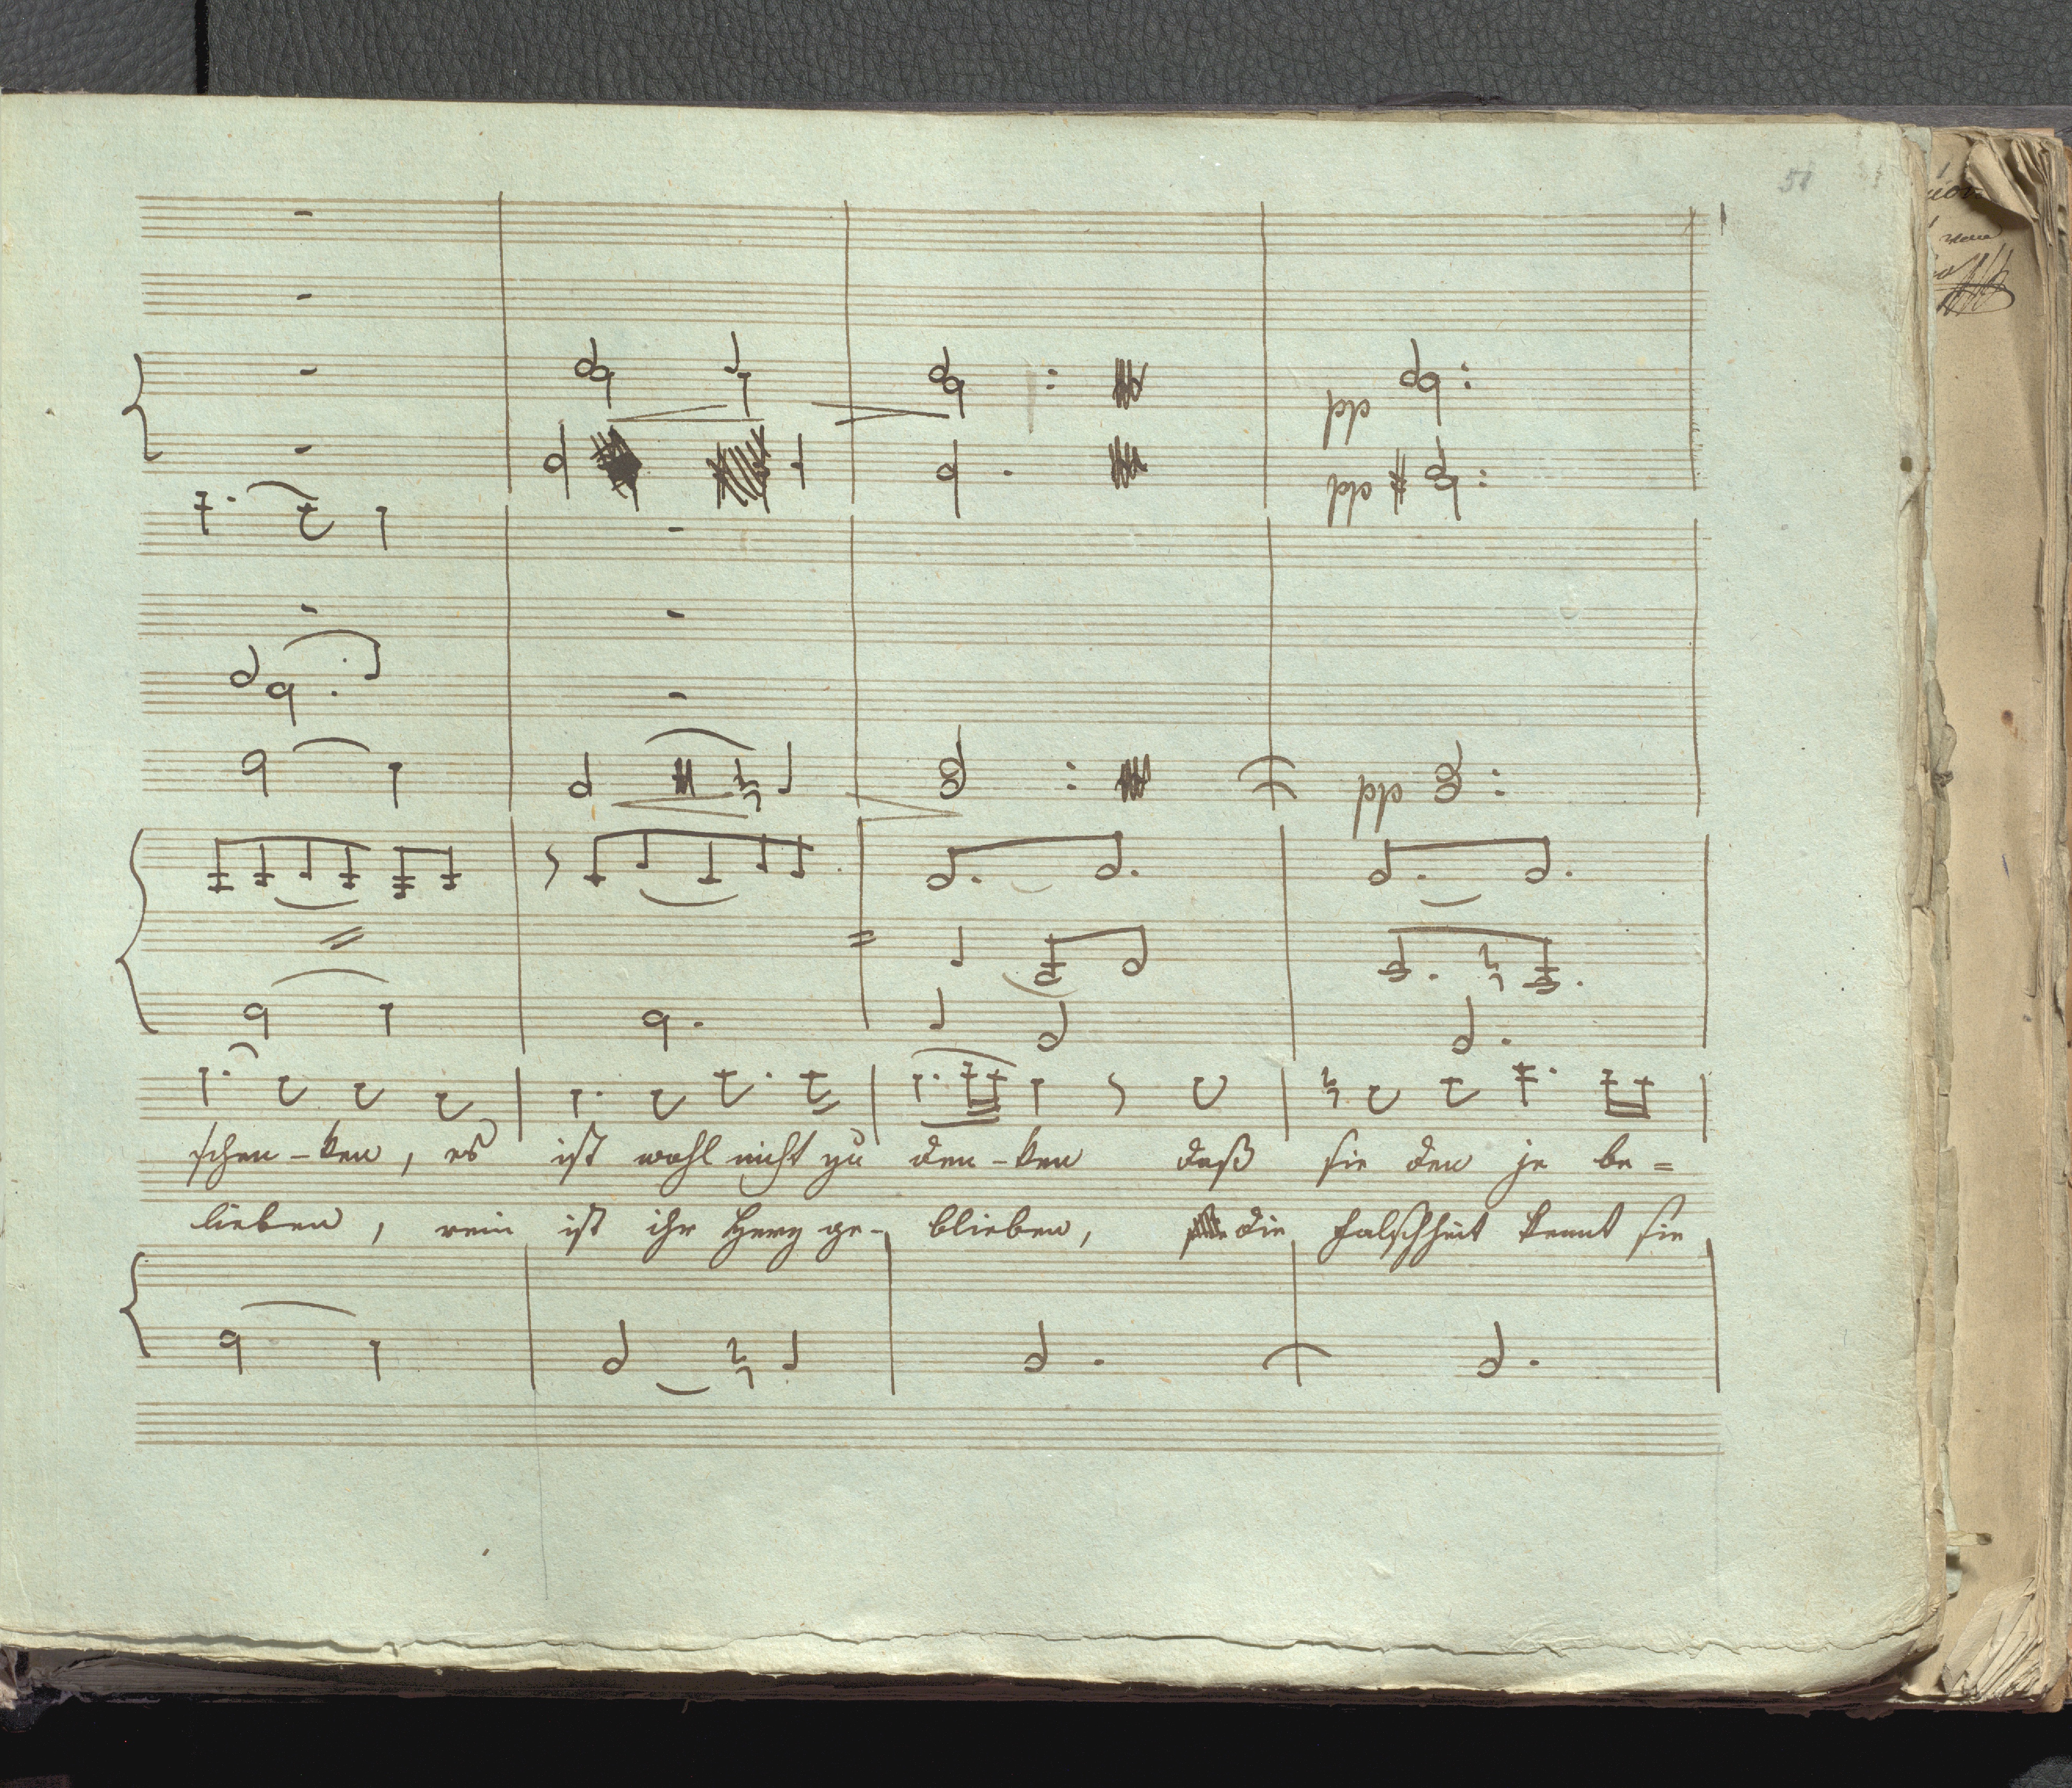 51
pp
pp
pp
schen-ken, es ist wohl nicht zu den-ken daß sie den je be=
lieben, rein ist ihr Herz ge- blieben, die falschheit kennt sie